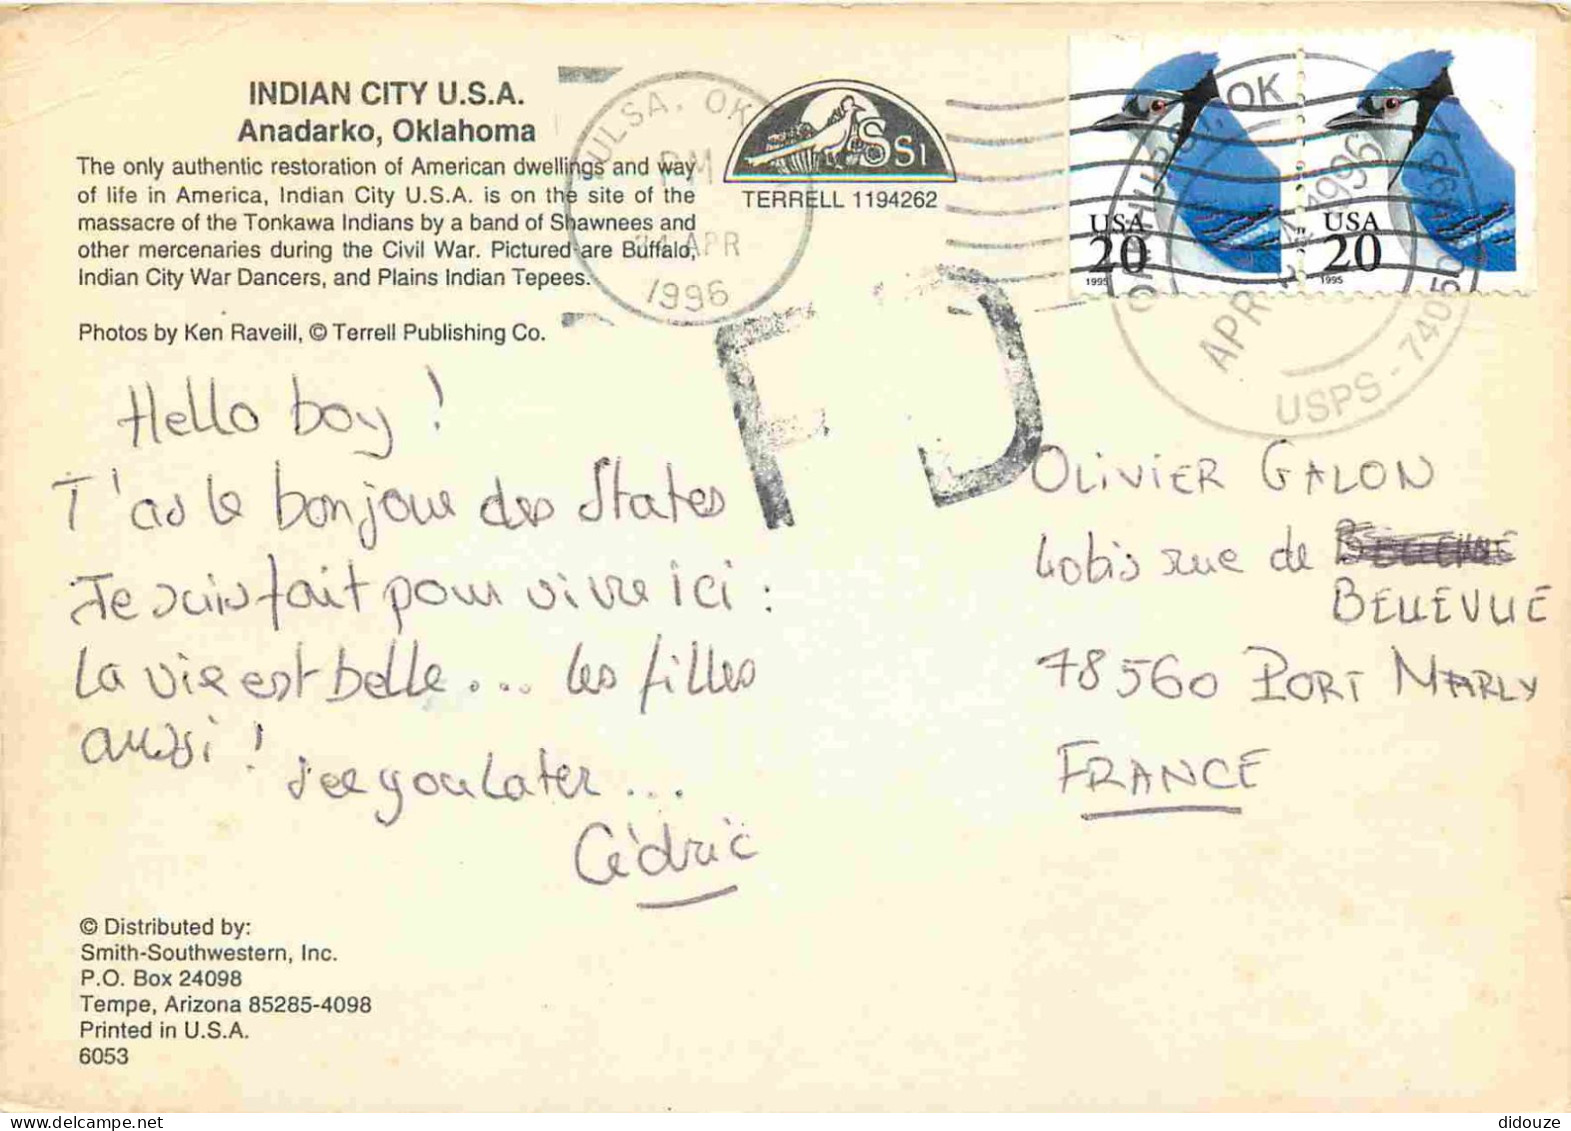 INDIAN CITY U.S.A.
Anadarko, Oklahoma
The only authentic restoration of American dwellings and way
of life in America, Indian City U.S.A. is on the site of the
massacre of the Tonkawa Indians by a band of Shawnees and
other mercenaries during the Civil War. Pictured are Buffalo,
Indian City War Dancers, and Plains Indian Tepees.
Photos by Ken Raveill, © Terrell Publishing Co.
ULSA, OK
PM
24 APR
1996
SSI
TERRELL 1194262
USA
20
1995
USA
20
1995
OK
APR
1996
USPS - 740
Hello boy !
T'as le bonjour des States
Je suis fait pour vivre ici :
la vie est belle... les filles
aussi !
see you later...
Cédric
OLIVIER GALON
40bis rue de
BELLEVUE
78560 PORT MARLY
FRANCE
© Distributed by:
Smith-Southwestern, Inc.
P.O. Box 24098
Tempe, Arizona 85285-4098
Printed in U.S.A.
6053
didouze